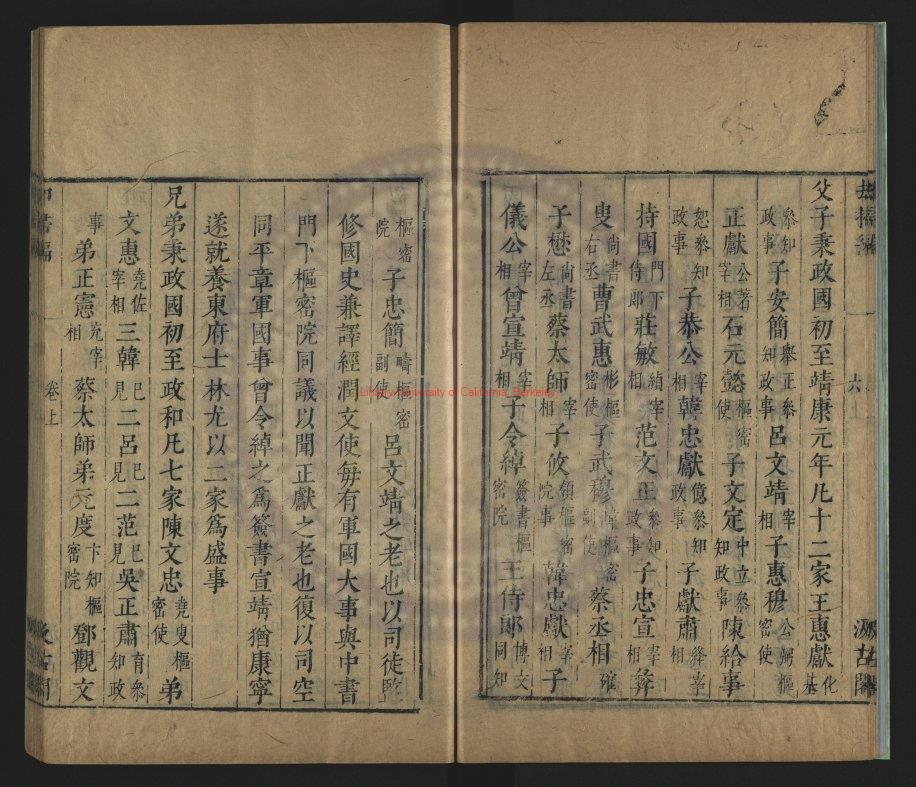 父子秉政國初至靖康元年凡十二家王惠獻化基
參知政事子安簡舉正參知政事呂文靖宰相子惠穆公弼樞密使
正獻公著宰相石元懿樞密使子文定中立參知政事陳給事
恕參知政事子恭公宰相韓忠獻億參知政事子獻肅絳宰相
持國門下侍郎莊敏縝宰相范文正參知政事子忠宣宰相彝
叟尚書右丞曹武惠彬樞密使子武穆瑋樞密副使蔡丞相確
子懋尚書左丞蔡太師宰相子攸領樞密院事韓忠獻宰相子
儀公宰相曾宣靖宰相子令綽簽書樞密院王侍郎博文同知
樞密院子忠簡疇樞密副使呂文靖之老也以司徒監
修國史兼譯經潤文使每有軍國大事與中書
門下樞密院同議以聞正獻之老也復以司空
同平章軍國事曾令綽之爲簽書宣靖猶康寧
遂就養東府士林尤以二家爲盛事
兄弟秉政國初至政和凡七家陳文忠堯叟樞密使弟
文惠堯佐宰相三韓已見二呂已見二范已見吳正肅育參知政
事弟正憲充宰相蔡太師弟元度卞知樞密院鄧觀文
卷上
六
汲古閣
Library, University of California, Berkeley